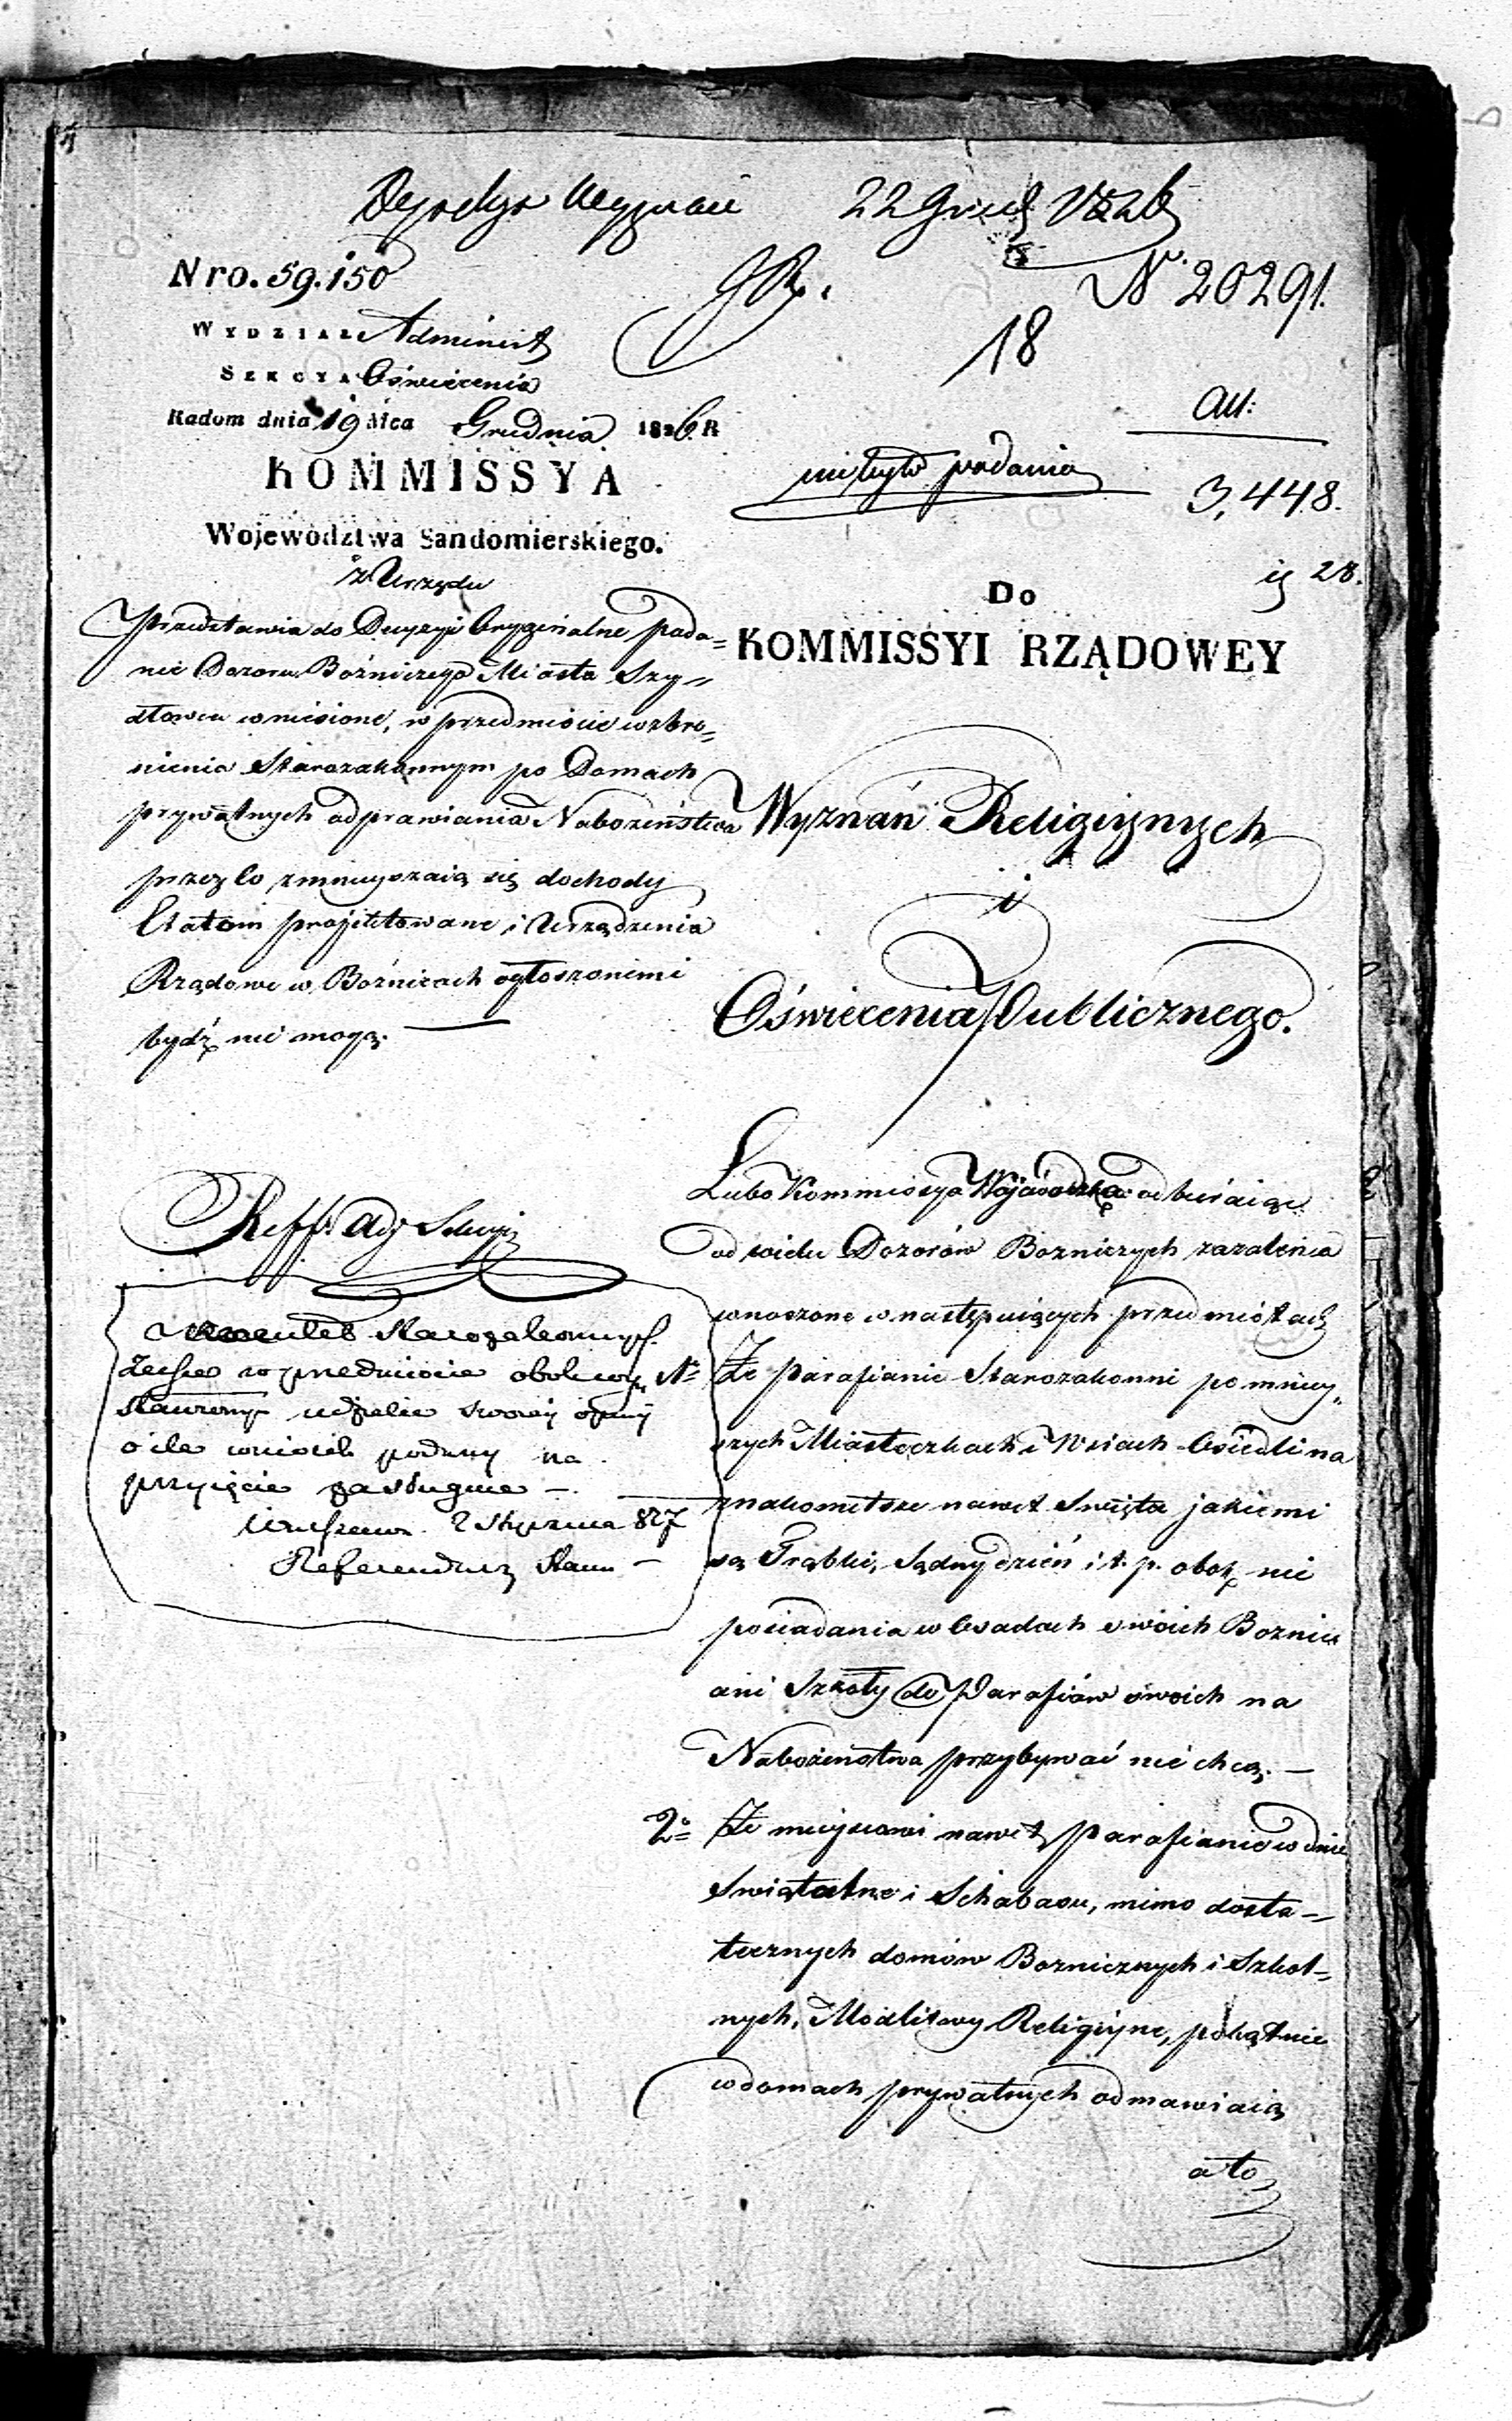 22 Grud 1826
Nro. 59.150
N 20291.
WYDZIAŁ Administ
18
SEKCYA Oświecenia
Radom dnia 19 Mca Grudnia 1826 R
All:
KOMMISSYA
nie było podania
3,448.
Województwa Sandomierskiego.
z Urzędu
28.
Przedstawia do Decyzyi Oryginalne poda=
nie Dozoru Bożniczego Miasta Szy=
dłowca wniesione, w przedmiocie wzbro=
nienia Starozakonnym po Domach
prywatnych odprawiania Nabożeństwa
przez co zmnieyszaią się dochody
Etatem projektowane i Urządzenia
Rządowe w Bożnicach ogłoszonemi
bydź nie mogą.
Do
KOMMISSYI RZĄDOWEY
Wyznań Religiynych
i
Oświecenia Publicznego.
Reff.
Komitet Starozakonnych
zechce w przedmiocie
udzielić swoiey opinii
o ile wniosek podany na
przyięcie zasługuie —
Warszawa 2 Stycznia 827
Referendarz Stanu —
Lubo Kommissya Wojewódzka odbieraiąc
od wielu Dozorów Bozniczych zazalenia
wnoszone w następuiących przedmiotach
Że Parafianie Starozakonni po mniey=
szych Miasteczkach i Wsiach Osiedli na
znakomitsze nawet Swięta jakiemi
są Trąbki, Sądny dzień i t. p. obok nie
posiadania w Osadach swoich Boznic
ani Szkoły do Parafiów swoich na
Nabożenstwa przybywać nie chcą. —
2o Że mieyscowi nawet Parafianie w dnie
Swiąteczne i Schabasu, mimo dosta=
tecznych domów Boznicznych i Szkol=
nych, Modlitwy Religiyne, pokątnie
w domach prywatnych odmawiaią
a to